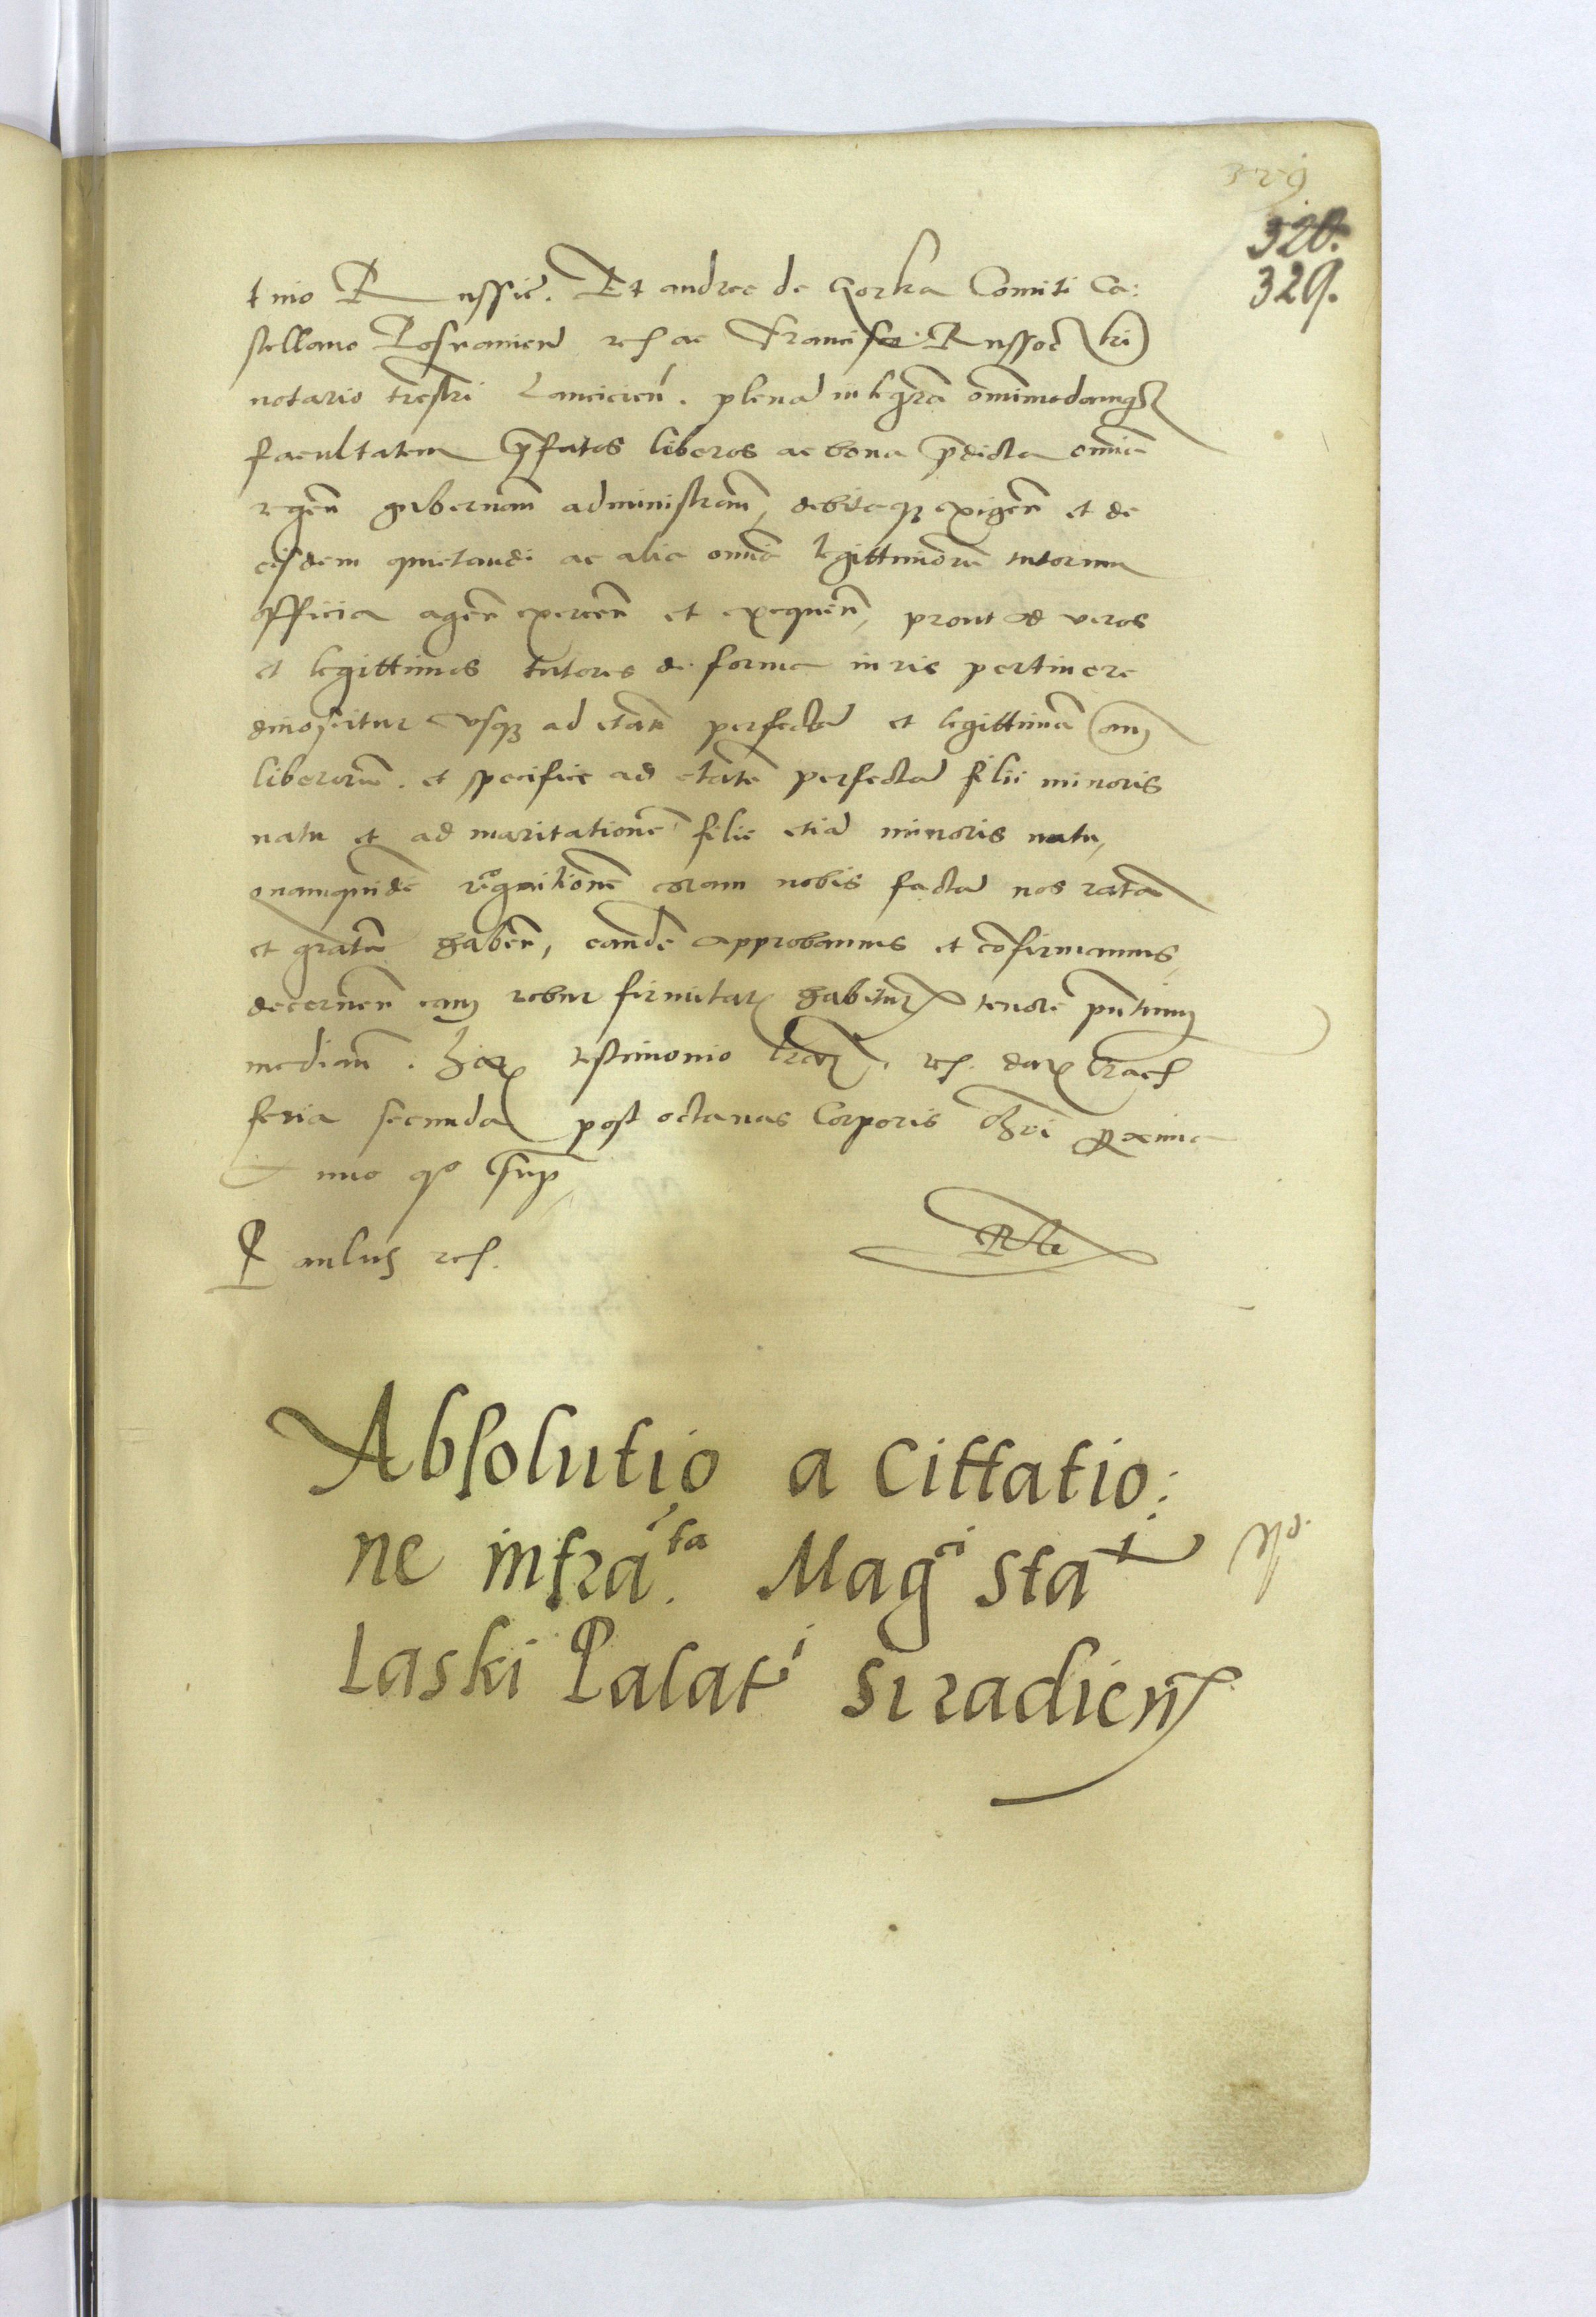 329
320.
329.
tino Russie. Et andree de Gorka Comiti Ca:
stellano Posnanien ref ac Francisco Russoc ki
notario trestri Lancicien. plena integra omnimodamq
facultatem pfatos liberos ac bona pdicta omnia
regen gubernan administran, debitaq exigen et de
eisdem quietandi ac alia omia legittimoru tutorum
officia agen exercen et exequen, prout ad veros
et legittimos tutores de forma iuris pertinere
dinoscitur vsq ad etate perfecta et legittima
liberoru. et specifice ad etate perfecta filii minoris
natu et ad maritatione filie etia minoris natu,
quamquide recognitione coram nobis facta nos rata
et grata haben, eande approbamus et confirmamus,
decernen eam robur firmitat habitur tenore pntium
median. Har testimonio lrar. ref. dat Crac
feria secunda post octauas Corporis Chri proxima
Anno quo sup
Paulus ref.
Absolutio a Cittatio:
ne infra ta. Mag ci Sta
Laski Palat i Siradien